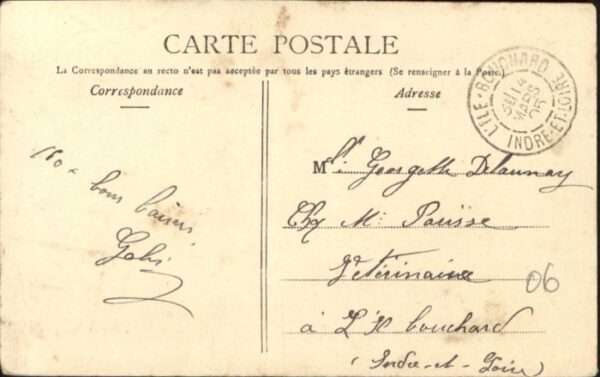 CARTE POSTALE
La Correspondance au recto n'est pas acceptée par tous les pays étrangers (Se renseigner à la Poste.)
Correspondance
Adresse
L'ILE-BOUCHARD
14
MARS
05
INDRE-ET-LOIRE
Mlle Georgette Delaunay
Chez M: Pousse
Vétérinaire
06
à L'Il bouchard
(Indre-et-Loire)
bons baisers
Gabi